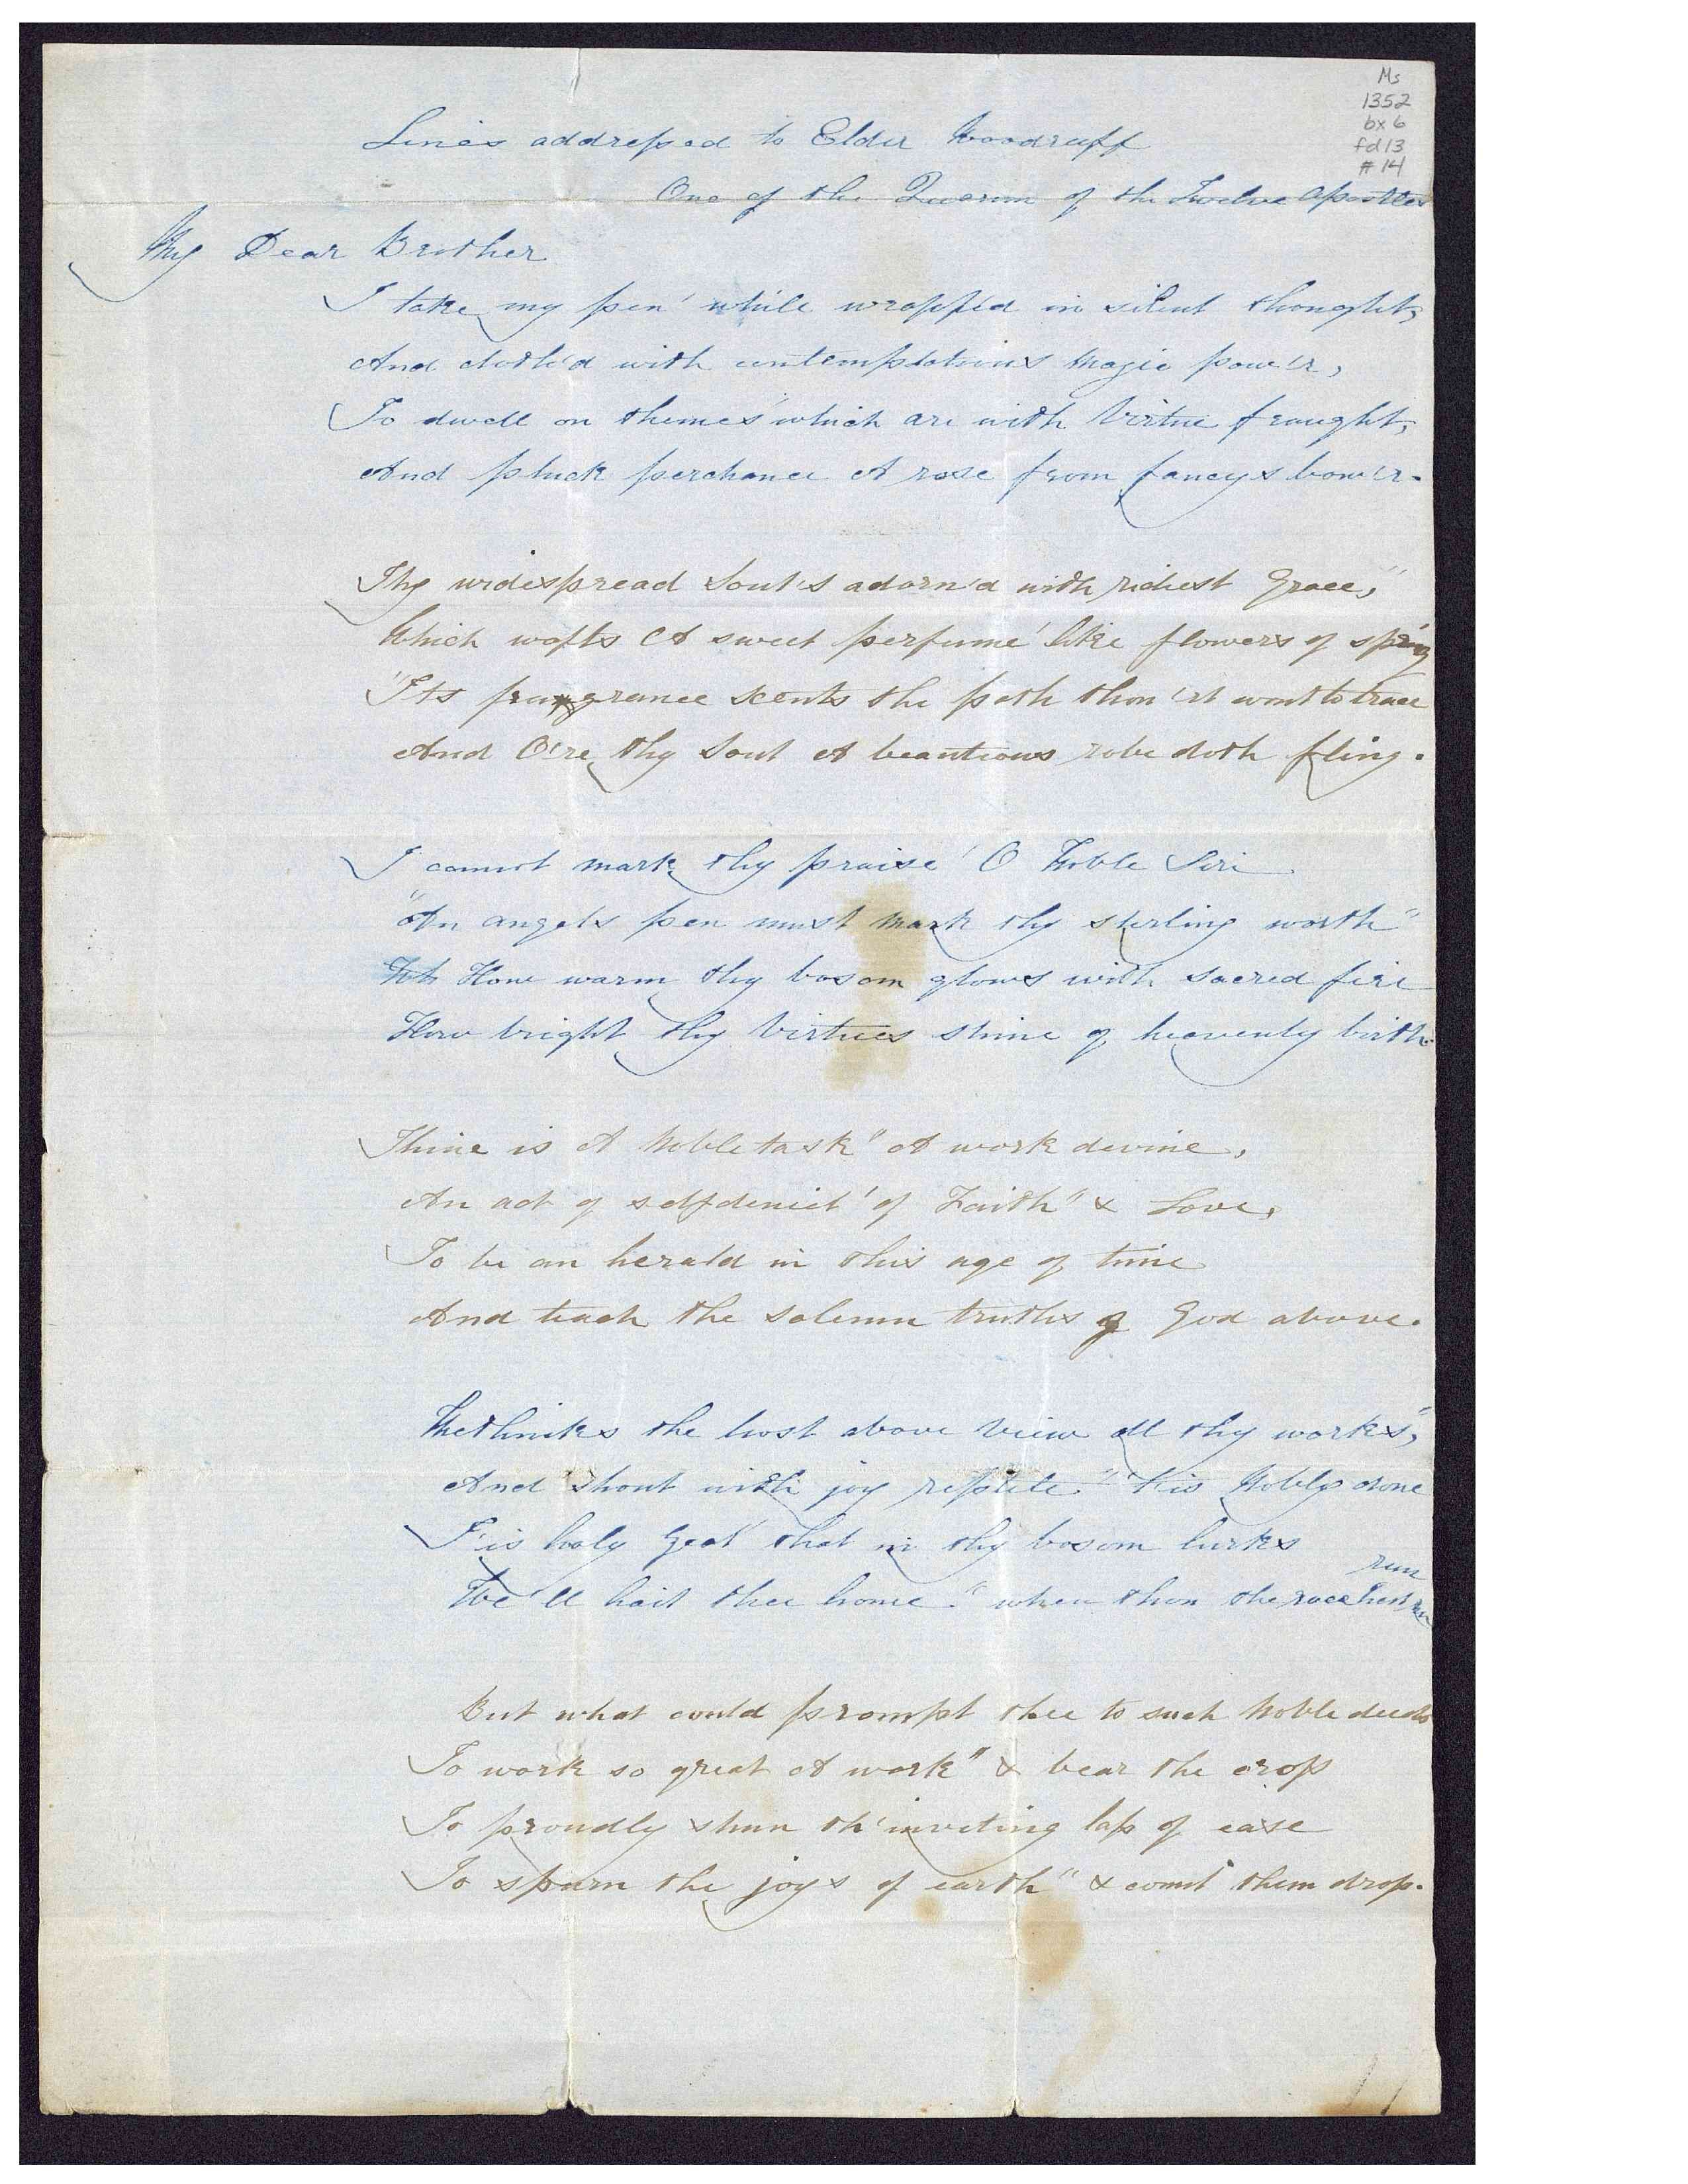 Ms
1352
bx 6
fd 13
# 14
Lines addressed to Elder Woodruff
One of the Quorum of the Twelve Apostles
My Dear Brother
I take my pen' while wrapp'd in silent thought,
And cloth'd with contemplations magic pow'r,
To dwell on themes' which are with Virtue fraught,
And pluck perchance A rose from fancys bow'r.
Thy widespread Soul's adorn'd with richest Grace,"
Which wafts A sweet perfume' like flowers of spring
Its fragrance scents the path thou 'rt wont to trace
And O're thy Soul A beautious robe doth fling.
I cannot mark thy praise' O Noble Sire
"An angels pen must mark thy sterling worth"
How warm thy bosom glows with sacred fire
How bright thy Virtues shine of heavenly birth.
Thine is A Noble task" A work devine,
An act of selfdeniel' of Faith" & Love,
To be an herald in this age of time
And teach the solemn truths of God above.
Methinks the host above View all thy works",
And shout with joy replete." 'tis Nobly done
T'is holy Zeal that in thy bosom lurks
We'll hail thee home." when thou the race hast run
run
But what could prompt thee to such Noble deeds
To work so great A work" & bear the cross
To proudly shun th'inviting lap of ease
To spurn the joys of earth" & count them dross.